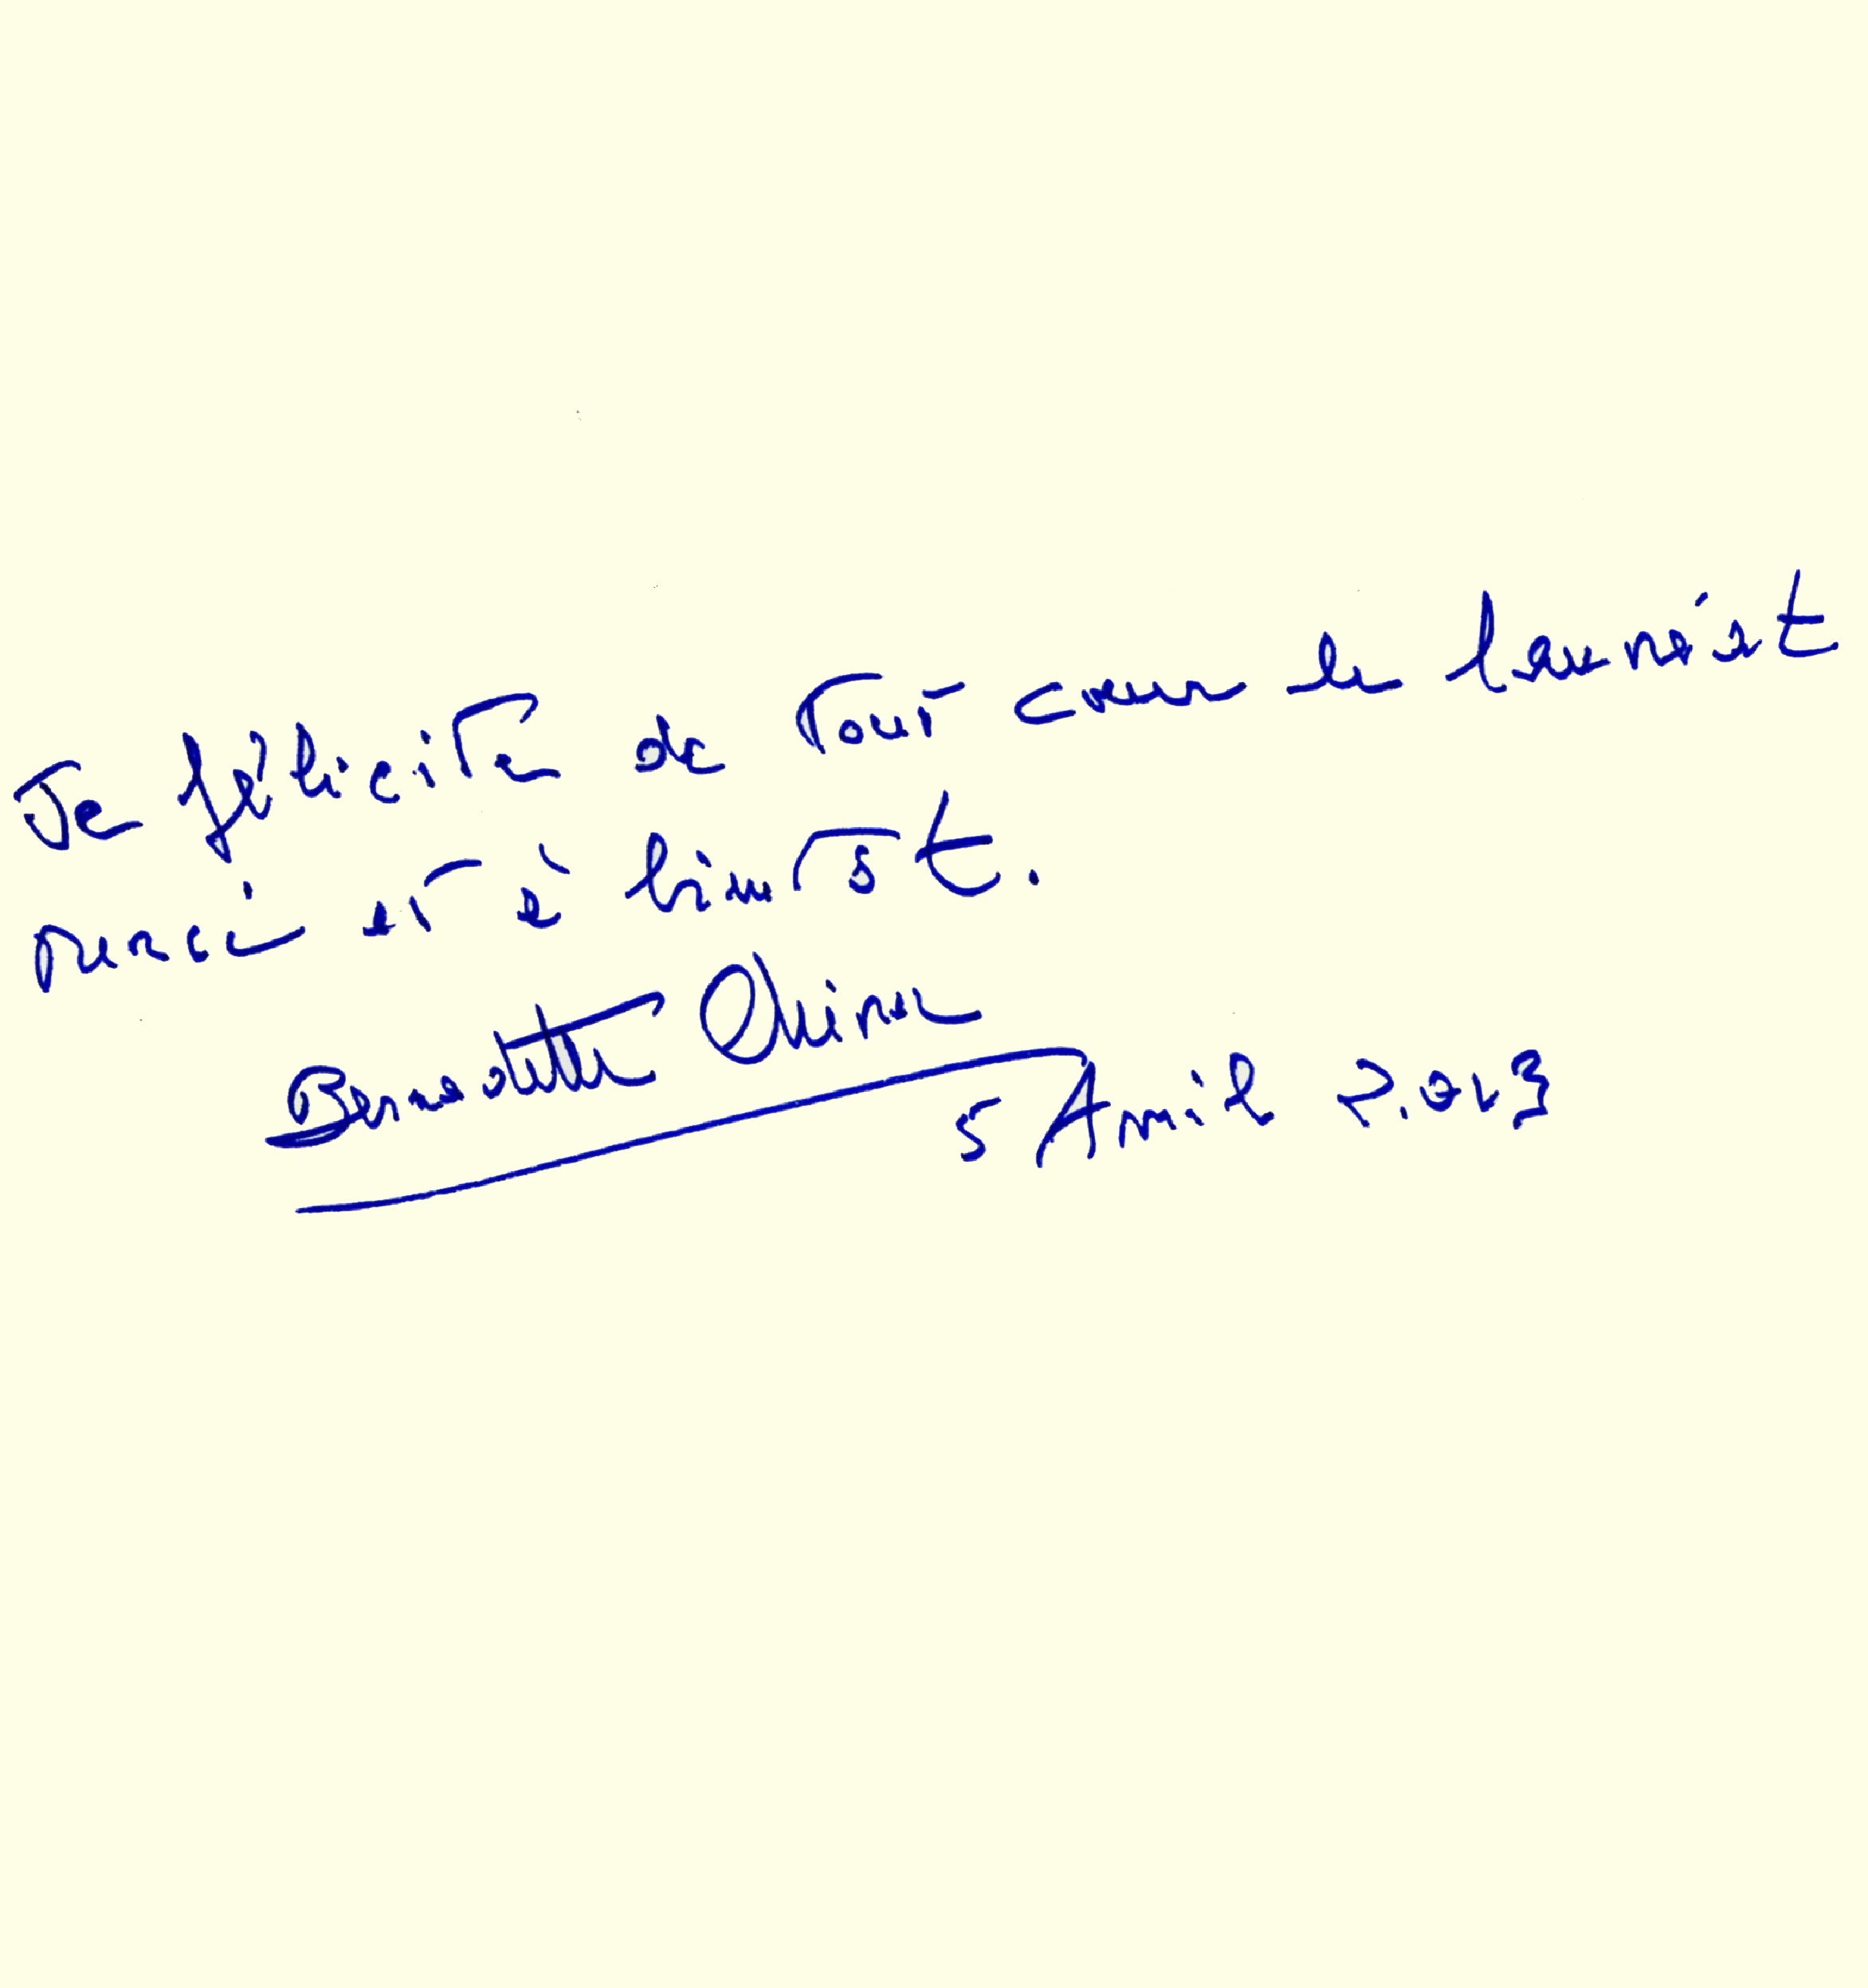 Je félicite de tout cœur le lauréat
merci et à bientôt.
Bernadette Chirac
5 Avril 2.013